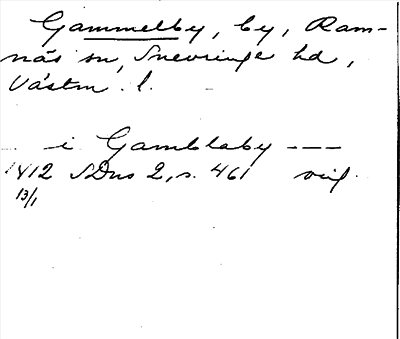 Gammelby, by, Ram-
näs sn, Snevringe hd,
Västm. l.
i Gamblaby ---
1412 SDns 2, s. 461 orig.
13/1